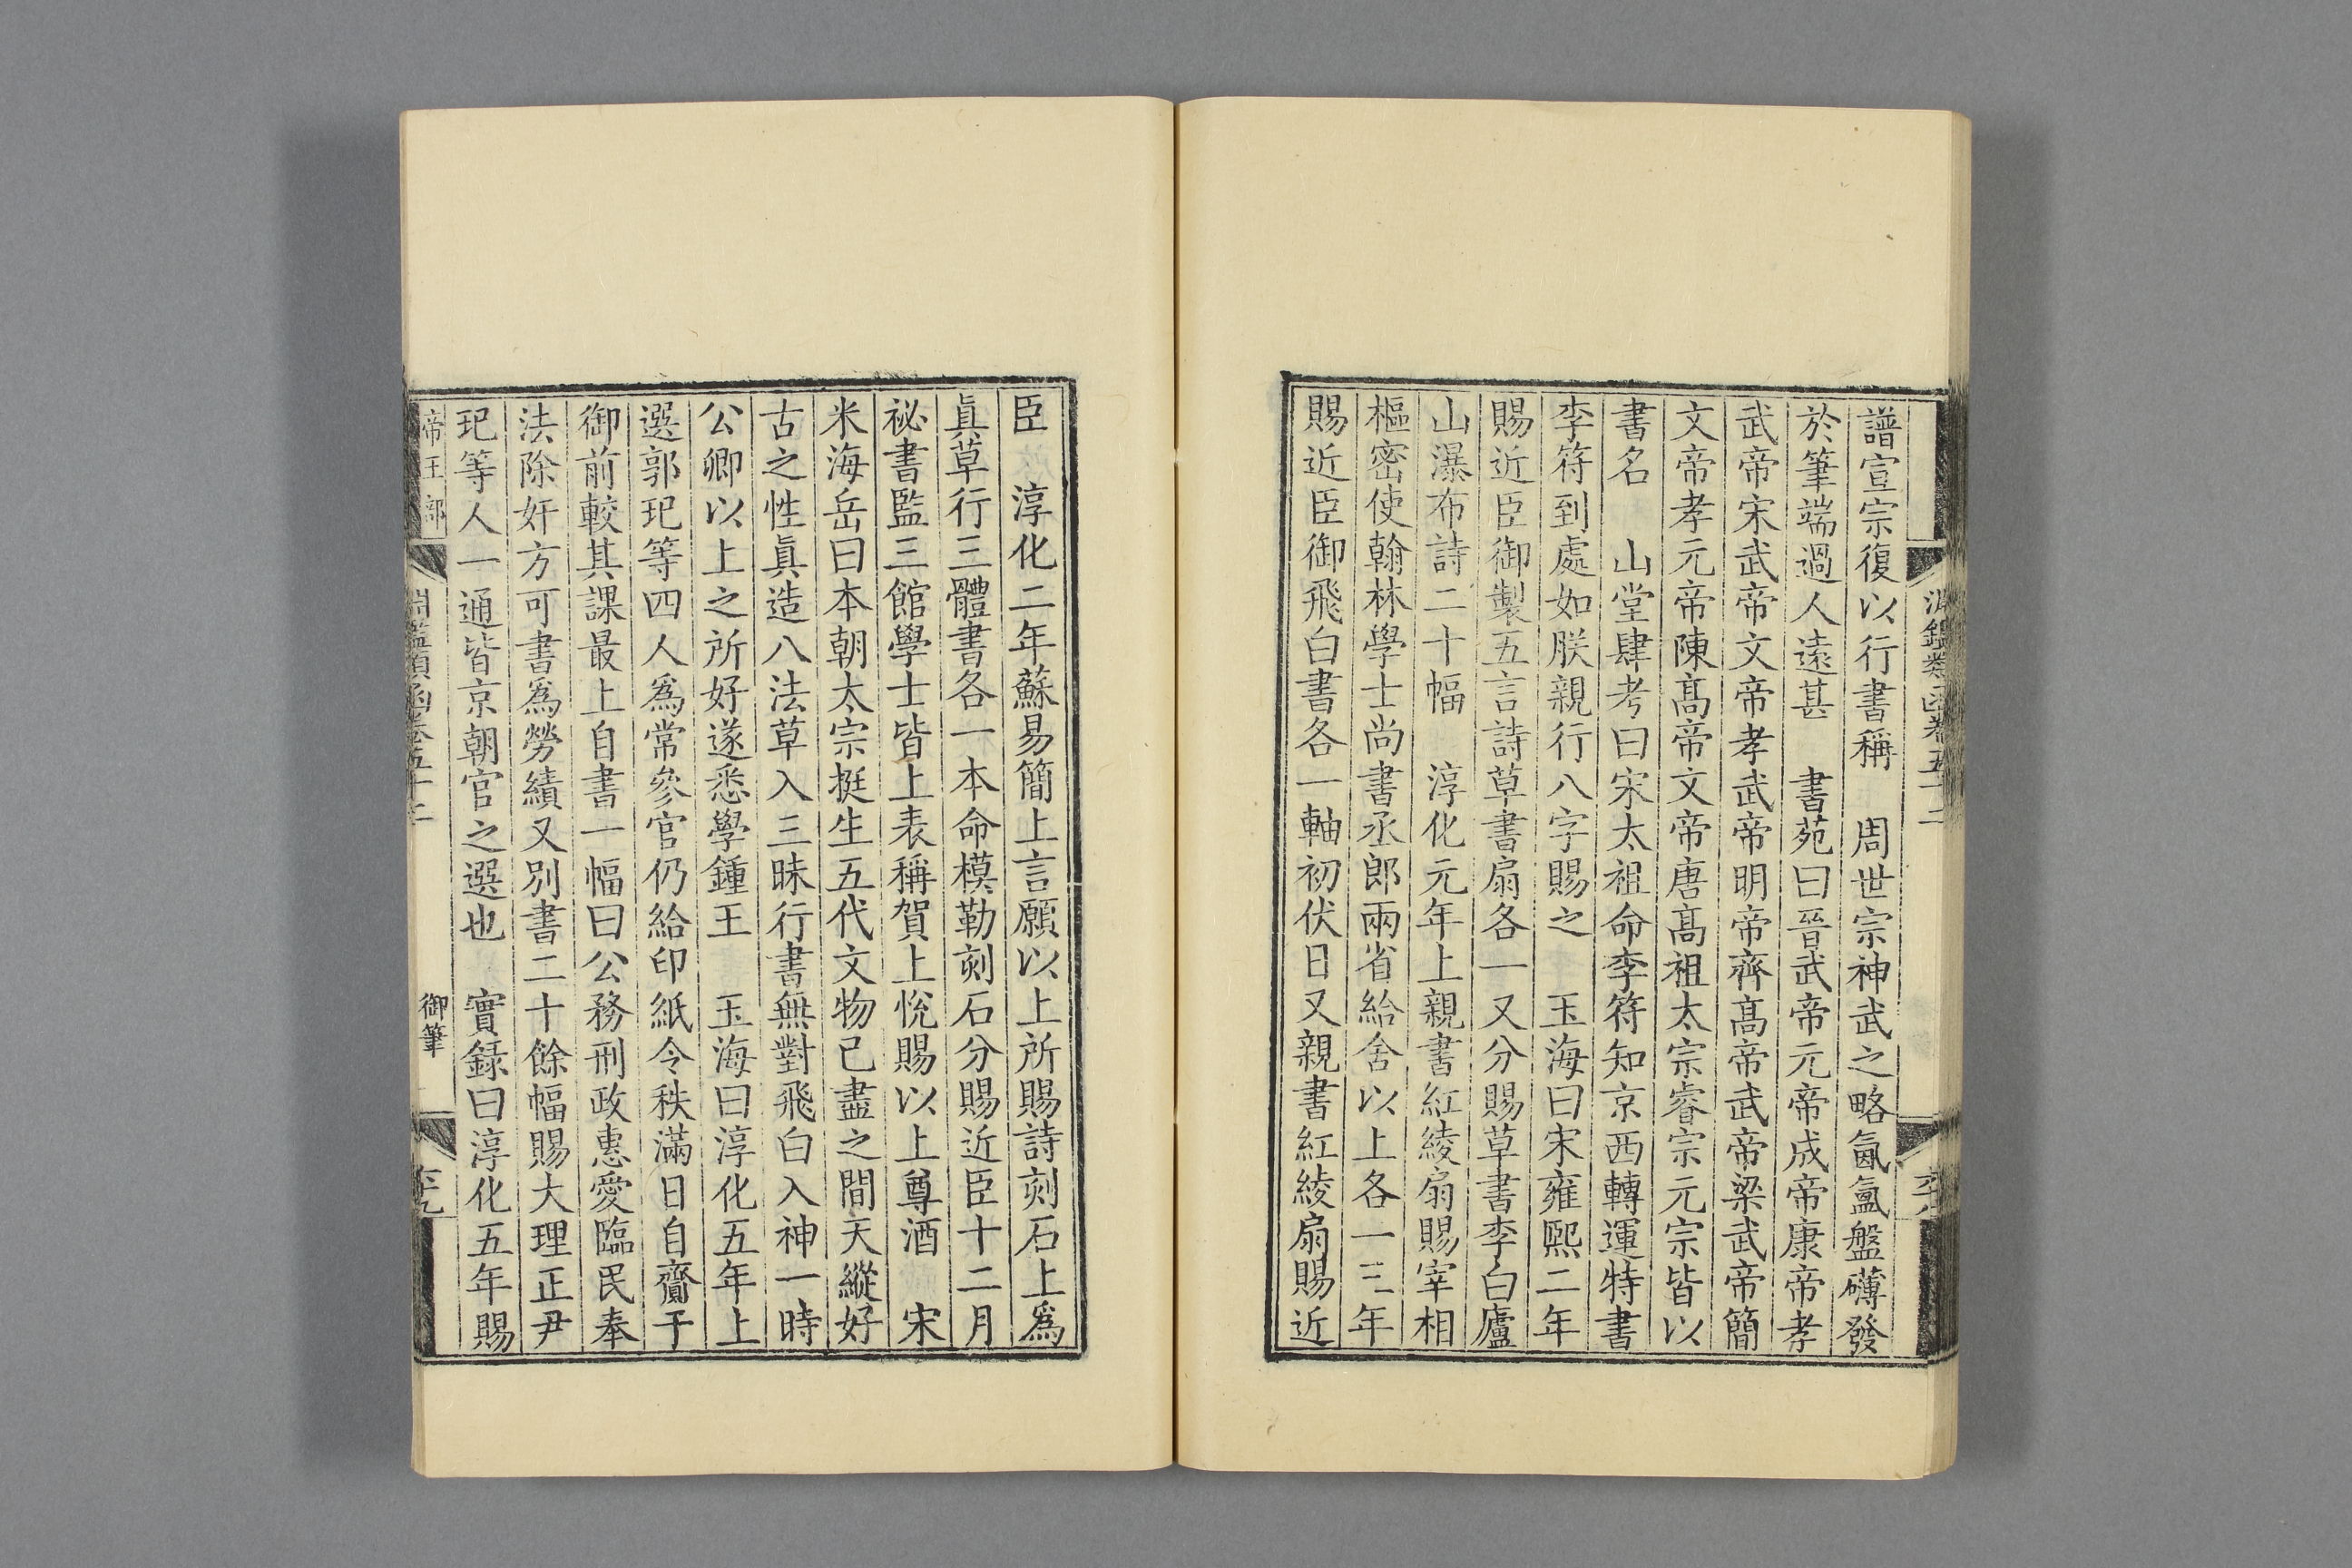 譜宣宗復以行書稱　周世宗神武之略氤氳盤礴發
於筆端過人遠甚　書苑曰晉武帝元帝成帝康帝孝
武帝宋武帝文帝孝武帝明帝齊髙帝武帝梁武帝簡
文帝孝元帝陳髙帝文帝唐髙祖太宗睿宗元宗皆以
書名　山堂肆考曰宋太祖命李符知京西轉運特書
李符到處如朕親行八字賜之　玉海曰宋雍熙二年
賜近臣御製五言詩草書扇各一又分賜草書李白廬
山瀑布詩二十幅　淳化元年上親書紅綾扇賜宰相
樞密使翰林學士尚書丞郎兩省給舍以上各一三年
賜近臣御飛白書各一軸初伏日又親書紅綾扇賜近
臣　淳化二年蘇易簡上言願以上所賜詩刻石上爲
眞草行三體書各一本命模勒刻石分賜近臣十二月
祕書監三館學士皆上表稱賀上悅賜以上尊酒　宋
米海岳曰本朝太宗挺生五代文物已盡之間天縱好
古之性眞造八法草入三昧行書無對飛白入神一時
公卿以上之所好遂悉學鍾王　玉海曰淳化五年上
選郭玘等四人爲常參官仍給印紙令秩滿日自齎于
御前較其課最上自書一幅曰公務刑政惠愛臨民奉
法除奸方可書爲勞績又別書二十餘幅賜大理正尹
玘等人一通皆京朝官之選也　實録曰淳化五年賜
帝王部
淵鑑類函卷五十二
御筆